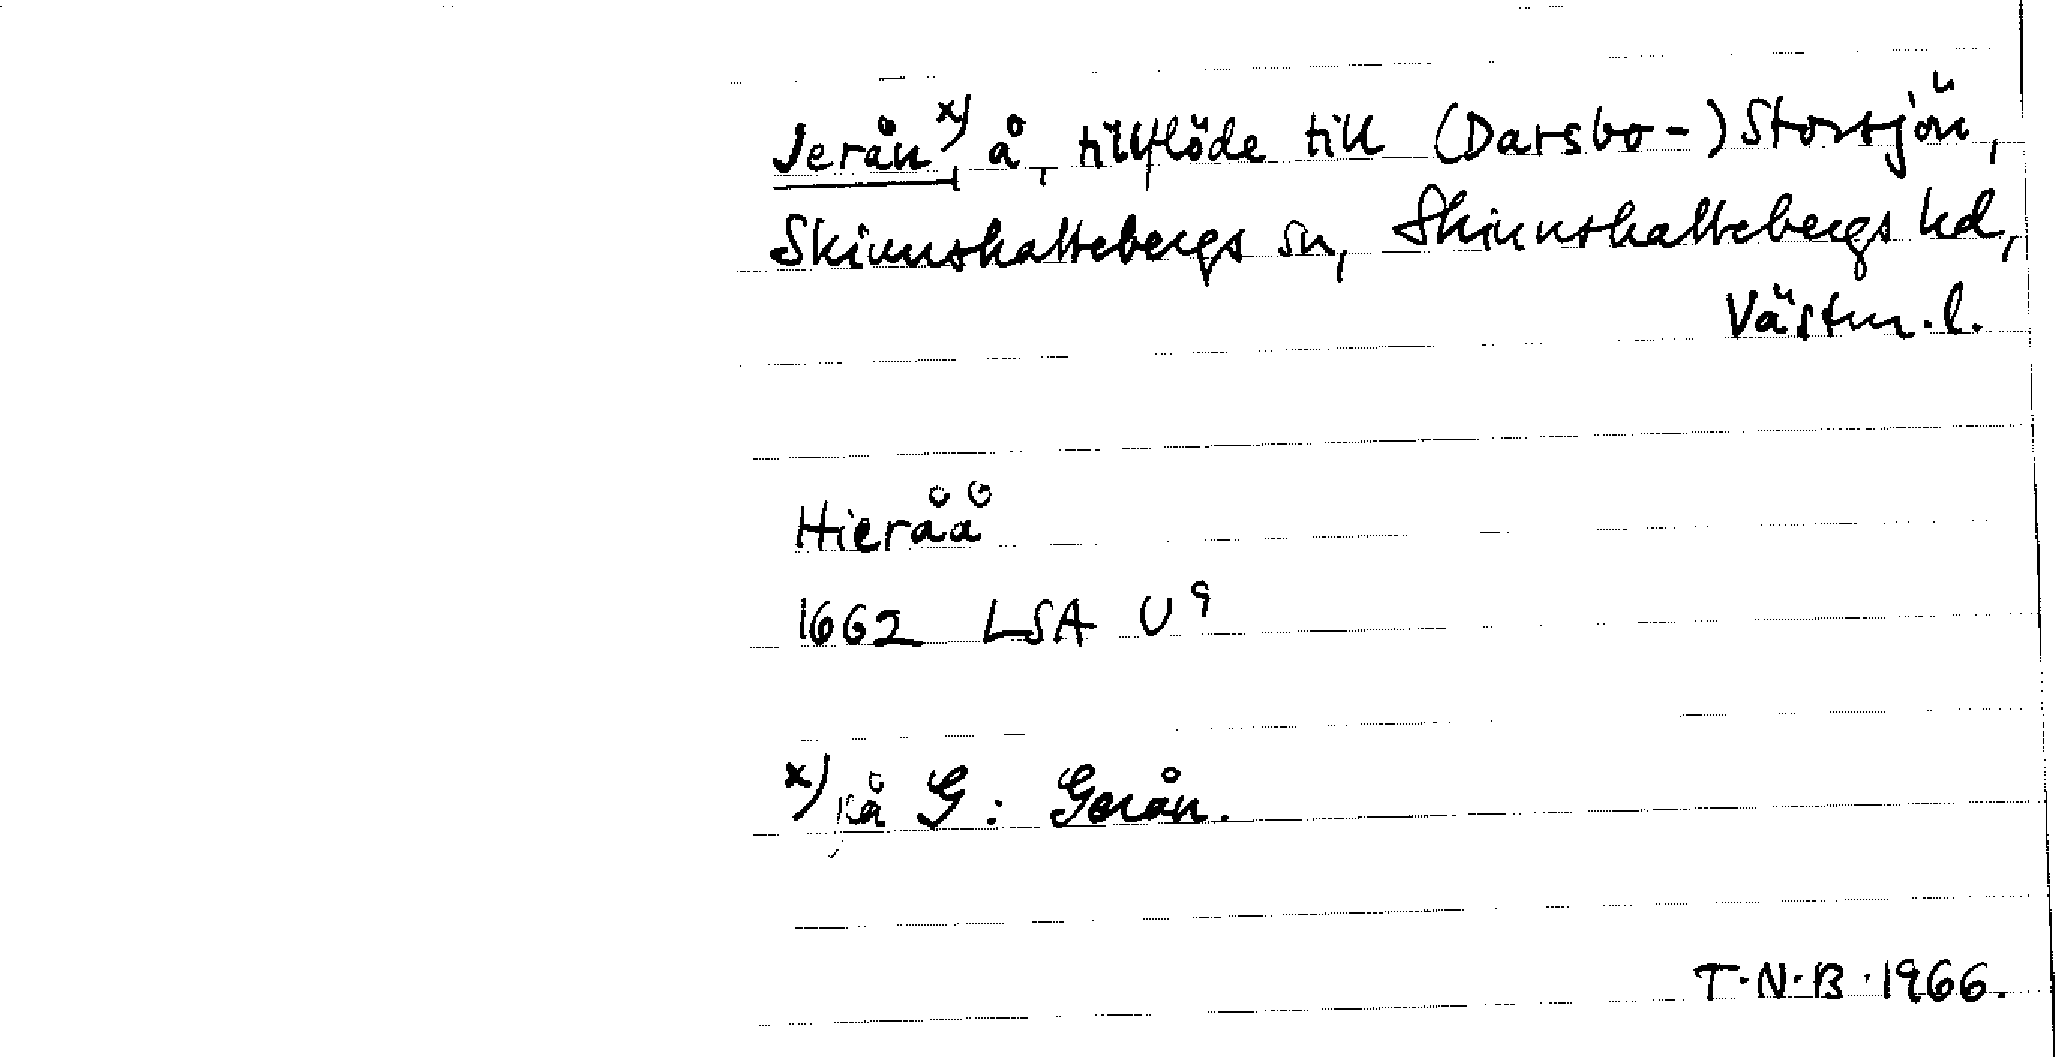 Jerån x), å, tillflöde till (Darsbo-) Storsjön,
Skinnskattebergs sn, Skinnskattebergs hd,
Västm. l.
Hieråå
1662 LSA U9
x) på G: Gerån.
T.N.B. 1966.